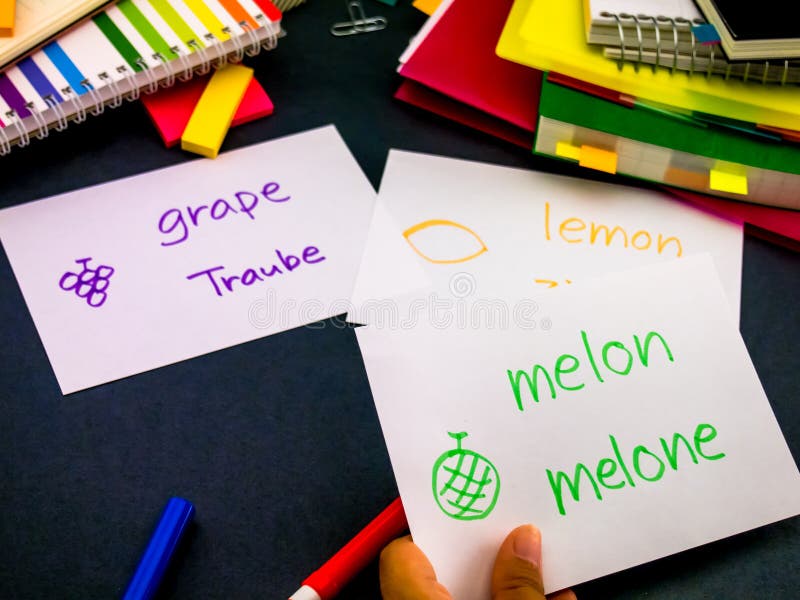 grape
Traube
lemon
melon
melone
dreamstime